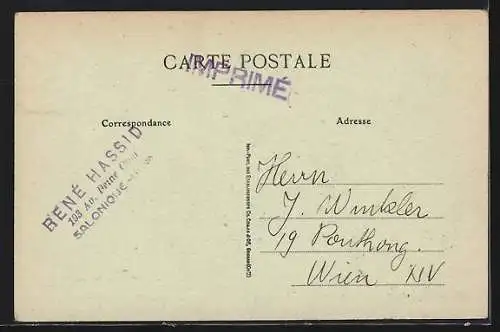 CARTE POSTALE
IMPRIMÉ
Correspondance
Adresse
RENÉ HASSID
103 Av. Reine Olga
SALONIQUE
Herrn
J. Winkler
19 Ponthong.
Wien XIV